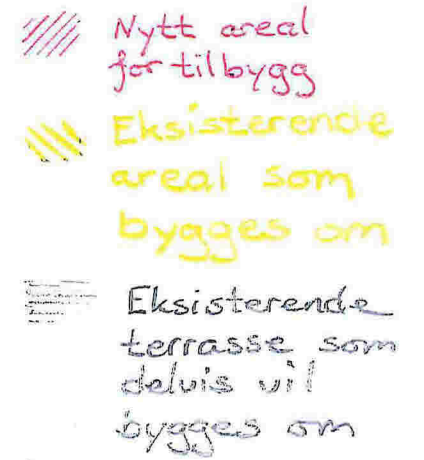 Nytt areal
for tilbygg
Eksisterende
areal som
bygges om
Eksisterende
terrasse som
delvis vil
bygges om